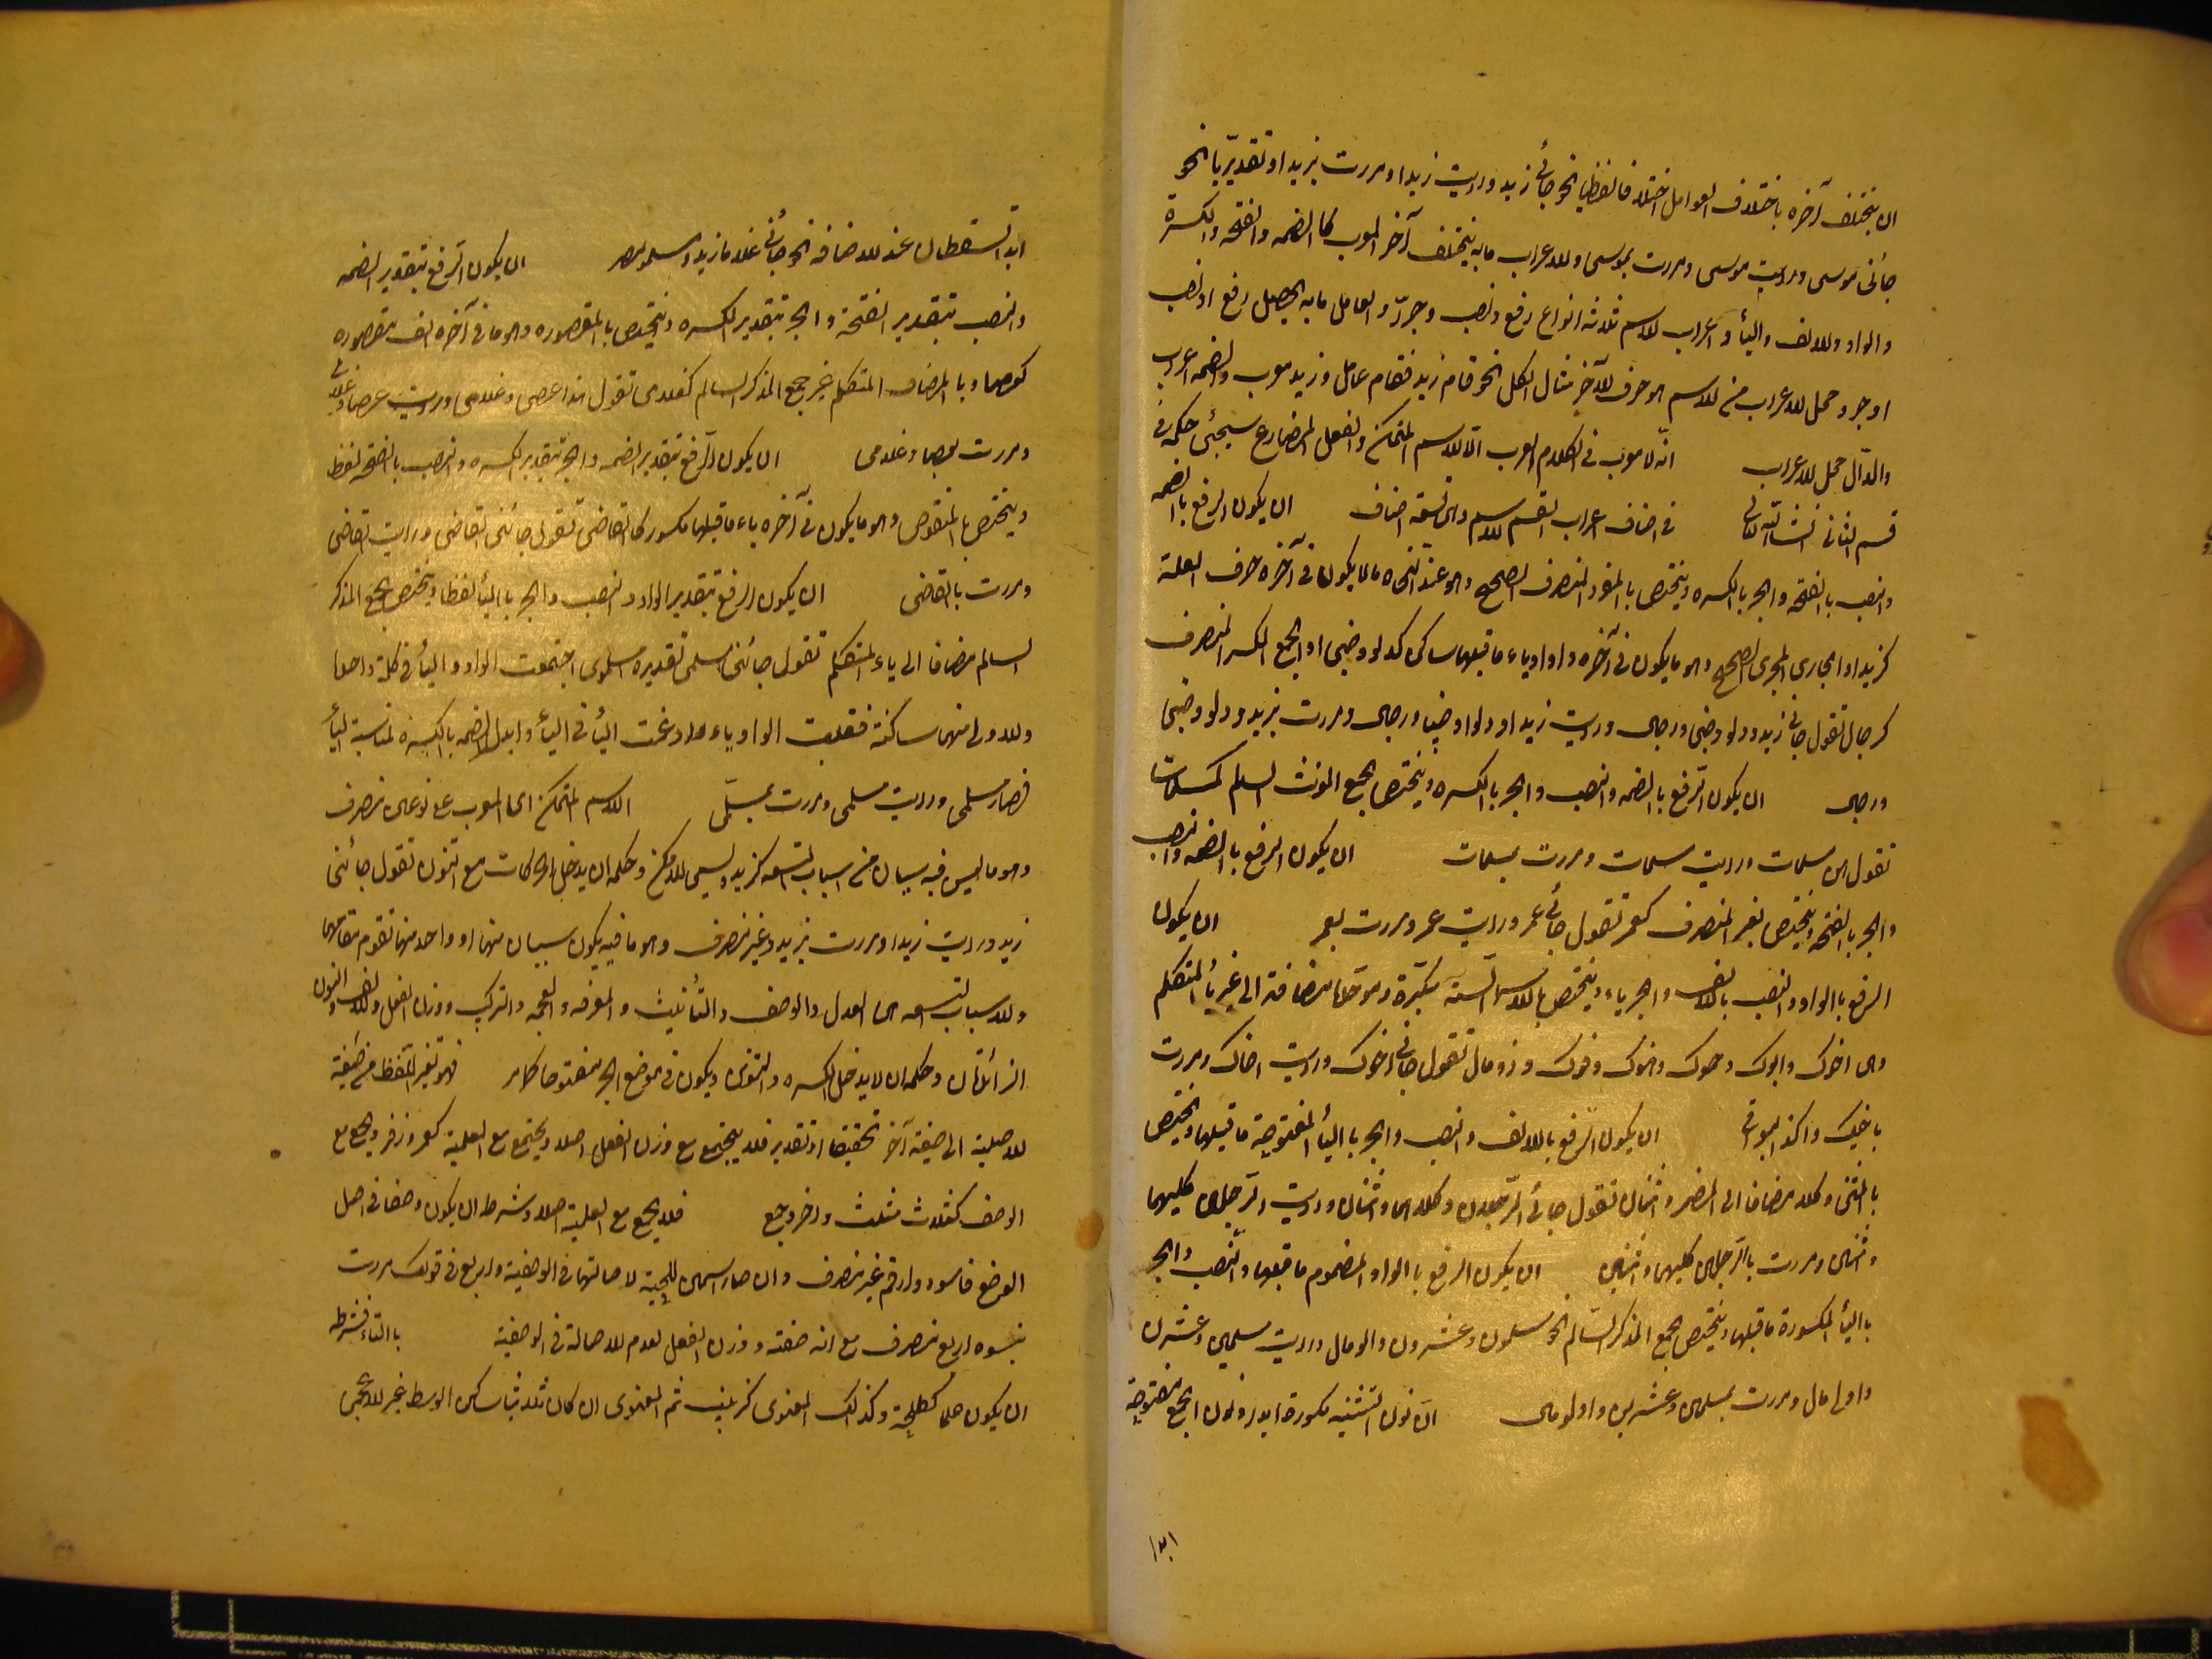 ان يختلف آخره باختلاف العوامل اختلافا لفظيا نحو جائنى زيد ورايت زيدا ومررت بزيد او تقديريا نحو
جائنى موسى ورايت موسى ومررت بموسى والاعراب مابه يختلف آخر المعرب كا الضمه والفتحه والكسرة
والواو والالف والياء واعراب الاسم ثلاثه انواع رفع ونصب وجرّ والعامل مابه يحصل رفع او نصب
او جر ومحل الاعراب من الاسم هو حرف الآخر مثال الكل نحو قام زيد فقام عامل وزيد معرب والضمه اعراب
والدّال محل الاعراب انّه لا معرب فى الكلام العرب الّا الاسم المتمكن والفعل المضارع سيجئى حكمه فى
قسم الثانى انشاالله تعالى فى اصناف اعراب القسم الاسم وهى تسعة اصناف ان يكون الرفع بالضمه
والنصب بالفتحه والجر بالكسره ويختص بالمفرد المنصرف الصحيح وهو عند النحاه مالا يكون فى آخره حرف العلة
كزيد او الجارى المجرى الصحيح وهو ما يكون فى آخره واو او ياء ما قبلهما ساكن كدلو وظبى او الجمع المكسر المنصرف
كرجال تقول جائنى زيد ودلو وظبى ورجال ورايت زيدا ودلوا وظبيا ورجالا ومررت بزيد ودلو وظبى
ورجال ان يكون الرّفع بالضمه والنصب والجر بالكسره ويختص بجمع المونث السالم كمسلمات
تقول هن مسلمات ورايت مسلمات ومررت بمسلمات ان يكون الرفع بالضمه والنصب
والجر بالفتحه ويختص بغير المنصرف كعمر تقول جائنى عمر ورايت عمر ومررت بعمر ان يكون
الرفع بالواو والنصب بالالف والجر بياء ويختص بالاسماء الستّه مكبّرة وموحّدة مضافة الى غير ياء المتكلم
وهى اخوك وابوك وحموك وهنوك وفوك وذو مال تقول جائنى اخوك ورايت اخاك ومررت
باخيك وكذا البواقى ان يكون الرّفع بالالف والنصب والجر بالياء المفتوحة ما قبلها ويختص
بالمثنى وكلا مضافا الى المضمر واثنان تقول جائنى الرّجلان وكلاهما واثنان ورايت الرّجلين كليهما
واثنين ومررت بالرّجلين كليهما واثنين ان يكون الرفع بالواو المضموم ما قبلها والنّصب والجر
بالياء المكسورة ما قبلها ويختص بجمع المذكر السّالم نحو مسلمون وعشرون واولو مال ورايت مسلمين وعشرين
واولى مال ومررت بمسلمين وعشرين واولو مال ان نون التّثنيه مكسورة ابدا ونون الجمع مفتوحة
ابدا
ابدا تسقطان عند الاضافه نحو جائنى غلاما زيد ومسلمو مصر ان يكون الرّفع بتقدير الضمه
والنصب بتقدير الفتحة والجر بتقدير الكسره ويختص بالمقصوره وهو ما فى آخره الف مقصوره
كعصا وبالمضاف المتكلم غير جمع المذكر السالم كغلامى تقول هذا عصى وغلامى ورايت عصا وغلامى
ومررت بعصا وغلامى ان يكون الرّفع بتقدير الضمه والجر بتقدير الكسره والنصب بالفتحه لفظا
ويختص بالمنقوص وهو ما يكون فى آخره ياء ما قبلها مكسور كالقاضى تقول جائنى القاضى ورايت القاضى
ومررت بالقاضى ان يكون الرفع بتقدير الواو والنصب والجر بالياء لفظا ويختص بجمع المذكر
السالم مضافا الى ياء المتكلم تقول جائنى مسلمى تقديره مسلموى اجتمعت الواو والياء فى كلمة واحدة
والاولى منهما ساكنة فقلبت الواو ياء وادغمت الياء فى الياء وابدل الضمه بالكسره لمناسبة الياء
فصار مسلمى ورايت مسلمى ومررت بمسلمّى الاسم المتمكن اى المعرب على نوعين منصرف
وهو ما ليس فيه سببان من اسباب التسعه كزيد ويسمى الامكن وحكمه ان يدخل الحركات مع التنون تقول جائنى
زيد ورايت زيدا ومررت بزيد وغير منصرف وهو ما فيه يكون سببان منهما او واحد منهما تقوم مقامهما
والاسباب التسعه هى العدل والوصف والتأنيث والمعرفه والعجمه والتركيب ووزن الفعل والالف والنون
الزائدتان وحكمه ان لا يدخل الكسره والتنوين ويكون فى موضع الجر مفتوحا كما مر فهو تغير اللّفظ من صيغة
الاصلية الى صيغة آخر تحقيقا او تقديرا فلا يجتمع مع وزن الفعل اصلا ويجتمع مع العلمية كعمر وزفر ويجمع مع
الوصف كثلاث مثلث واخر وجمع فلا يجمع مع العلمية اصلا وشرط ان يكون وصفا فى اصل
الوضع فاسود وارقم غير منصرف وان صار اسمين للحية لاصالتهما فى الوصفية واربع فى قولك مررت
بنسوه اربع منصرف مع انه صفة ووزن الفعل لعدم الاصالة فى الوصفية بالتاء فشرطه
ان يكون علما كطلحة وكذلك المعنوى كزينب ثم المعنوى ان كان ثلاثيا ساكن الوسط غير الاعجمى